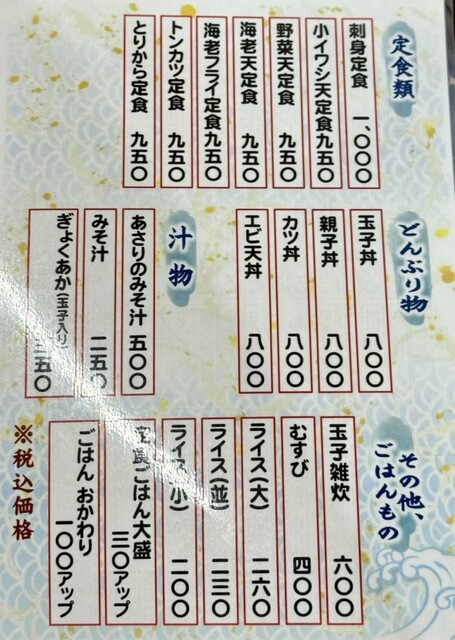 定食類
刺身定食 一、〇〇〇
小イワシ天定食 九五〇
野菜天定食 九五〇
海老天定食 九五〇
海老フライ定食 九五〇
トンカツ定食 九五〇
とりから定食 九五〇
どんぶり物
玉子丼 八〇〇
親子丼 八〇〇
カツ丼 八〇〇
エビ天丼 八〇〇
汁物
あさりのみそ汁 五〇〇
みそ汁 二五〇
ぎょくあか(玉子入り) 三五〇
その他、
ごはんもの
玉子雑炊 六〇〇
むすび 四〇〇
ライス(大) 二六〇
ライス(並) 二三〇
ライス(小) 二〇〇
定食ごはん大盛 三〇アップ
ごはん おかわり 一〇〇アップ
※税込価格